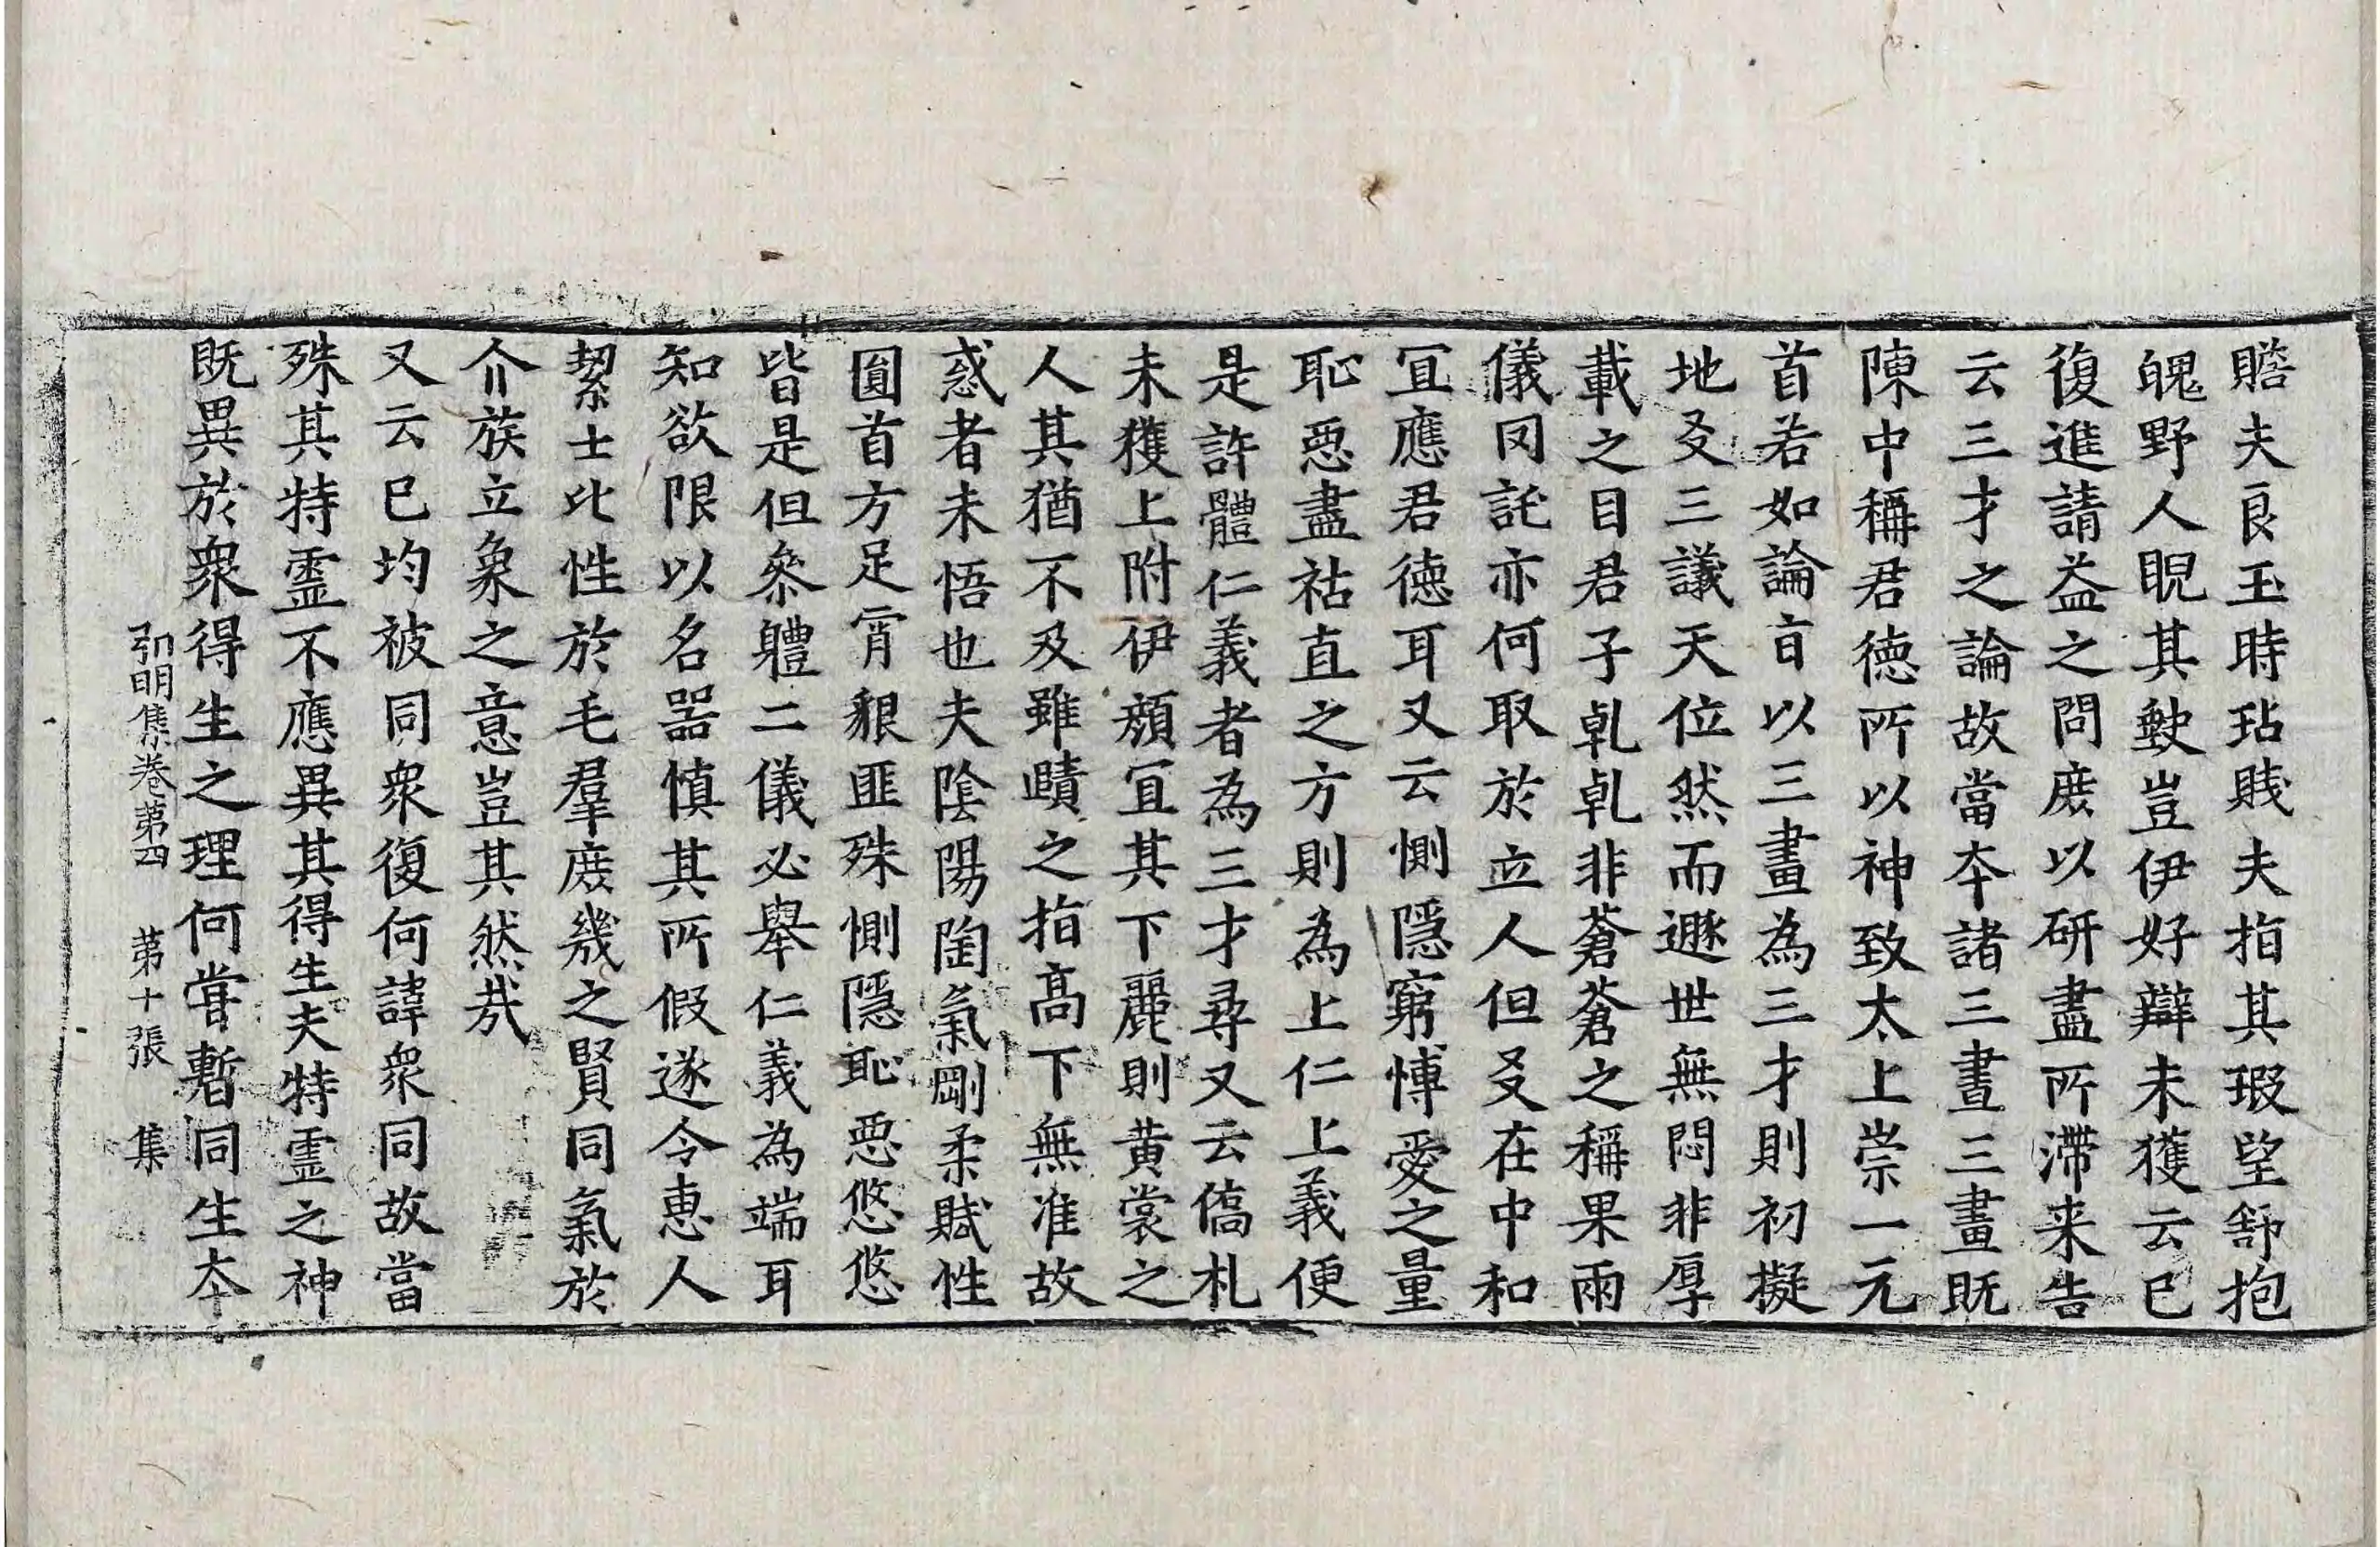 贍夫良玉時玷賤夫指其瑕望舒抱
魄野人睨其䵝豈伊好辯未獲云已
復進請益之問庶以研盡所滯来告
云三才之論故當本諸三畫三畫既
陳中稱君徳所以神致太上崇一元
首若如論旨以三畫為三才則初擬
地爻三議天位然而遯世無悶非厚
載之目君子乹乹非蒼蒼之稱果兩
儀罔託亦何取於立人但爻在中和
冝應君徳耳又云惻隱窮愽愛之量
恥惡盡祜直之方則為上仁上義便
是許體仁義者為三才尋又云僑札
未獲上附伊顔冝其下麗則黄裳之
人其猶不及雖賾之指髙下無准故
惑者未悟也夫陰陽陶氣剛柔賦性
圎首方足霄貌匪殊惻隱恥惡悠悠
皆是但叅軆二儀必舉仁義為端耳
知欲限以名器慎其所假遂令恵人
絜士比性於毛羣庶幾之賢同氣於
介族立象之意豈其然㢤
又云已均被同衆復何諱衆同故當
殊其特霊不應異其得生夫特霊之神
既異於衆得生之理何甞暫同生本
弘明集巻第四 第十張 集